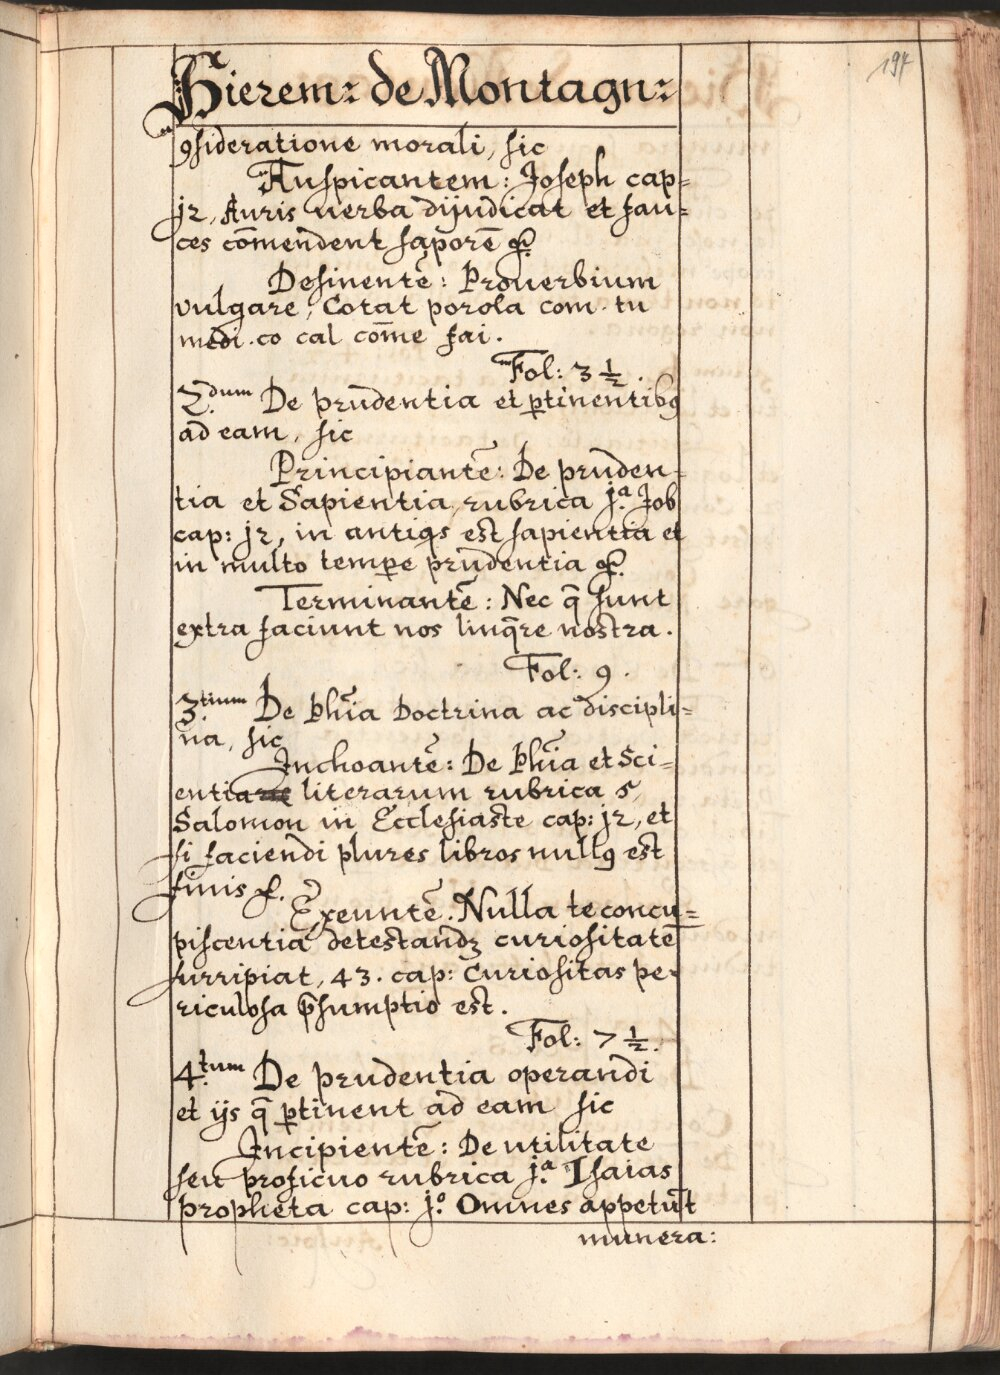 197
Hierem: de Montagn:
ꝯsideratione morali, sic
Auspicantem: Joseph cap=
jz, Auris uerba dijudicat et fau=
ces com̄endent saporē ꝛc.
Desinentē: Prouerbium
vulgare, Cotat porola com tu
medi.co cal com̄e fai.
Fol: 3 ½.
2.dum De prudentia et ꝑtinentibꝰ
ad eam, sic
Principiantē: De pruden-
tia et Sapientia, rubrica j.a Job
cap: jz, in antiqs est sapientia et
in multo temꝑe prudentia ꝛc.
Terminantē: Nec q̄ sunt
extra faciunt nos linq̄re nostra.
Fol: 9.
3.tium De Phīa Doctrina ac discipli=
na, sic
Inchoantē: De Phīa et Sci-
entia literarum rubrica 5,
Salomon in Ecclesiaste cap: jz, et
si faciendi plures libros nullꝰ est
finis ꝛc.
Exeuntē. Nulla te concu=
piscentia detestandꝫ curiositatē
surripiat, 43. cap: Curiositas pe-
riculosa p̄sumptio est.
Fol: 7 ½.
4.tum De prudentia operandi
et ijs q̄ ꝑtinent ad eam sic
Incipientē: De utilitate
seu proficuo rubrica j.a Isaias
propheta cap: j.o Omnes appetūt
munera: